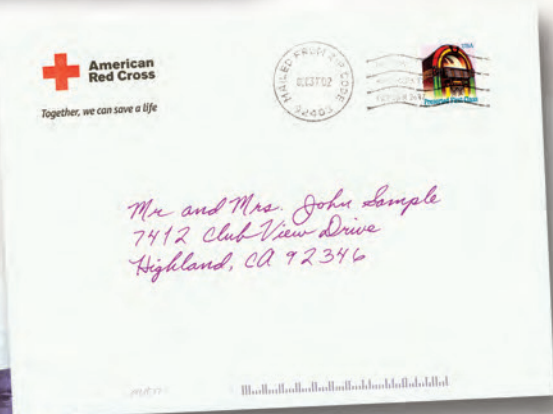 American
Red Cross
Together, we can save a life
MAILED FROM ZIP CODE
92403
USA
Presorted First-Class
Mr and Mrs. John Sample
7412 Club View Drive
Highland, CA 92346